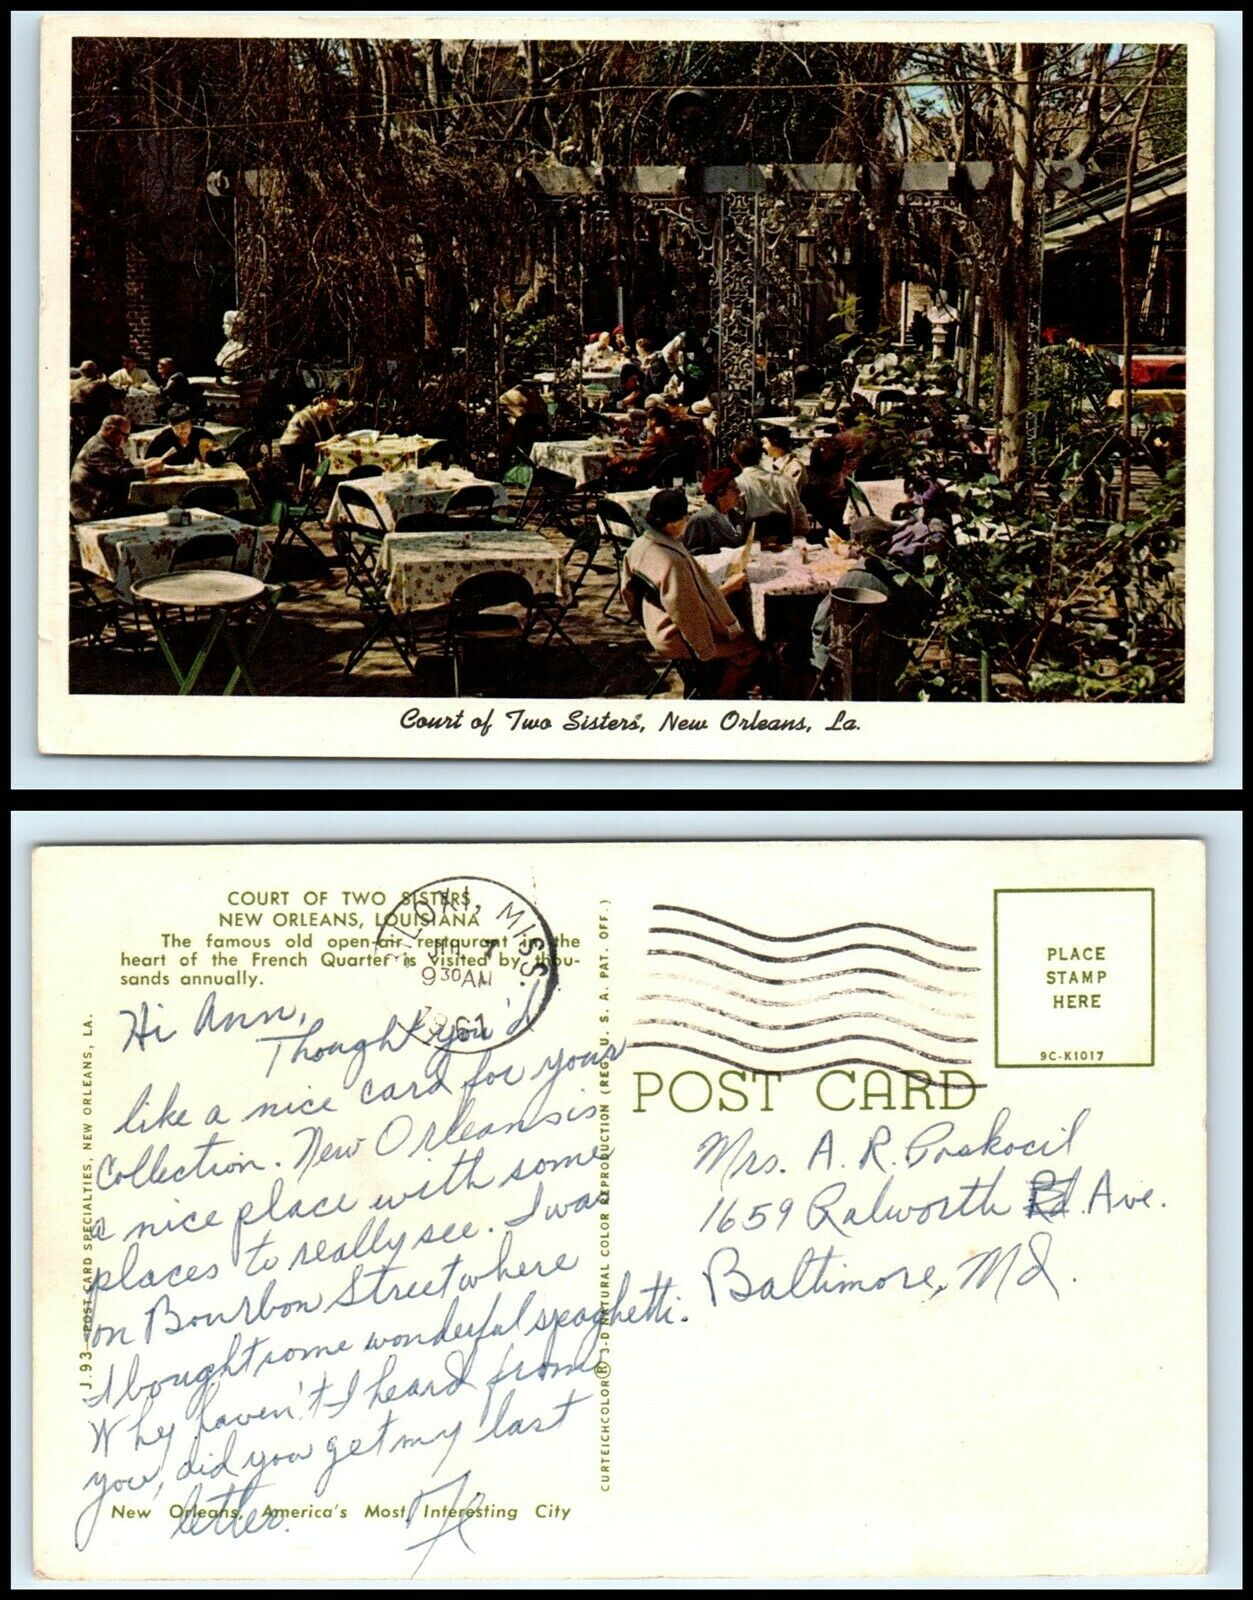 Court of Two Sisters, New Orleans, La.
COURT OF TWO SISTERS
NEW ORLEANS, LOUISIANA
The famous old open-air restaurant in the
heart of the French Quarter is visited by thou-
sands annually.
LOXI, MISS.
9 30 AM
Hi Ann,
Thought you'd
like a nice card for your
Collection. New Orleans is
a nice place with some
places to really see. I was
on Bourbon Street where
I bought some wonderful spaghetti.
Why haven't I heard from
you, did you get my last
letter.
New Orleans, America's Most Interesting City
J.93—POST CARD SPECIALTIES, NEW ORLEANS, LA.
CURTEICHCOLOR® 3-D NATURAL COLOR REPRODUCTION (REG. U. S. A. PAT. OFF.)
PLACE
STAMP
HERE
9C-K1017
POST CARD
Mrs. A. R. Paskocil
1659 Ralworth Rd. Ave.
Baltimore, Md.